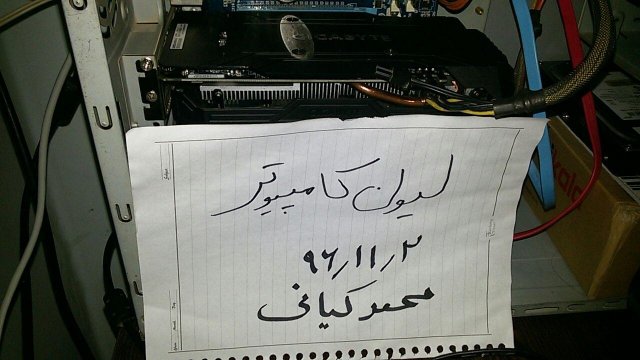 GIGABYTE
لیون کامپیوتر
۹۶/۱۱/۲
محمد کیانی